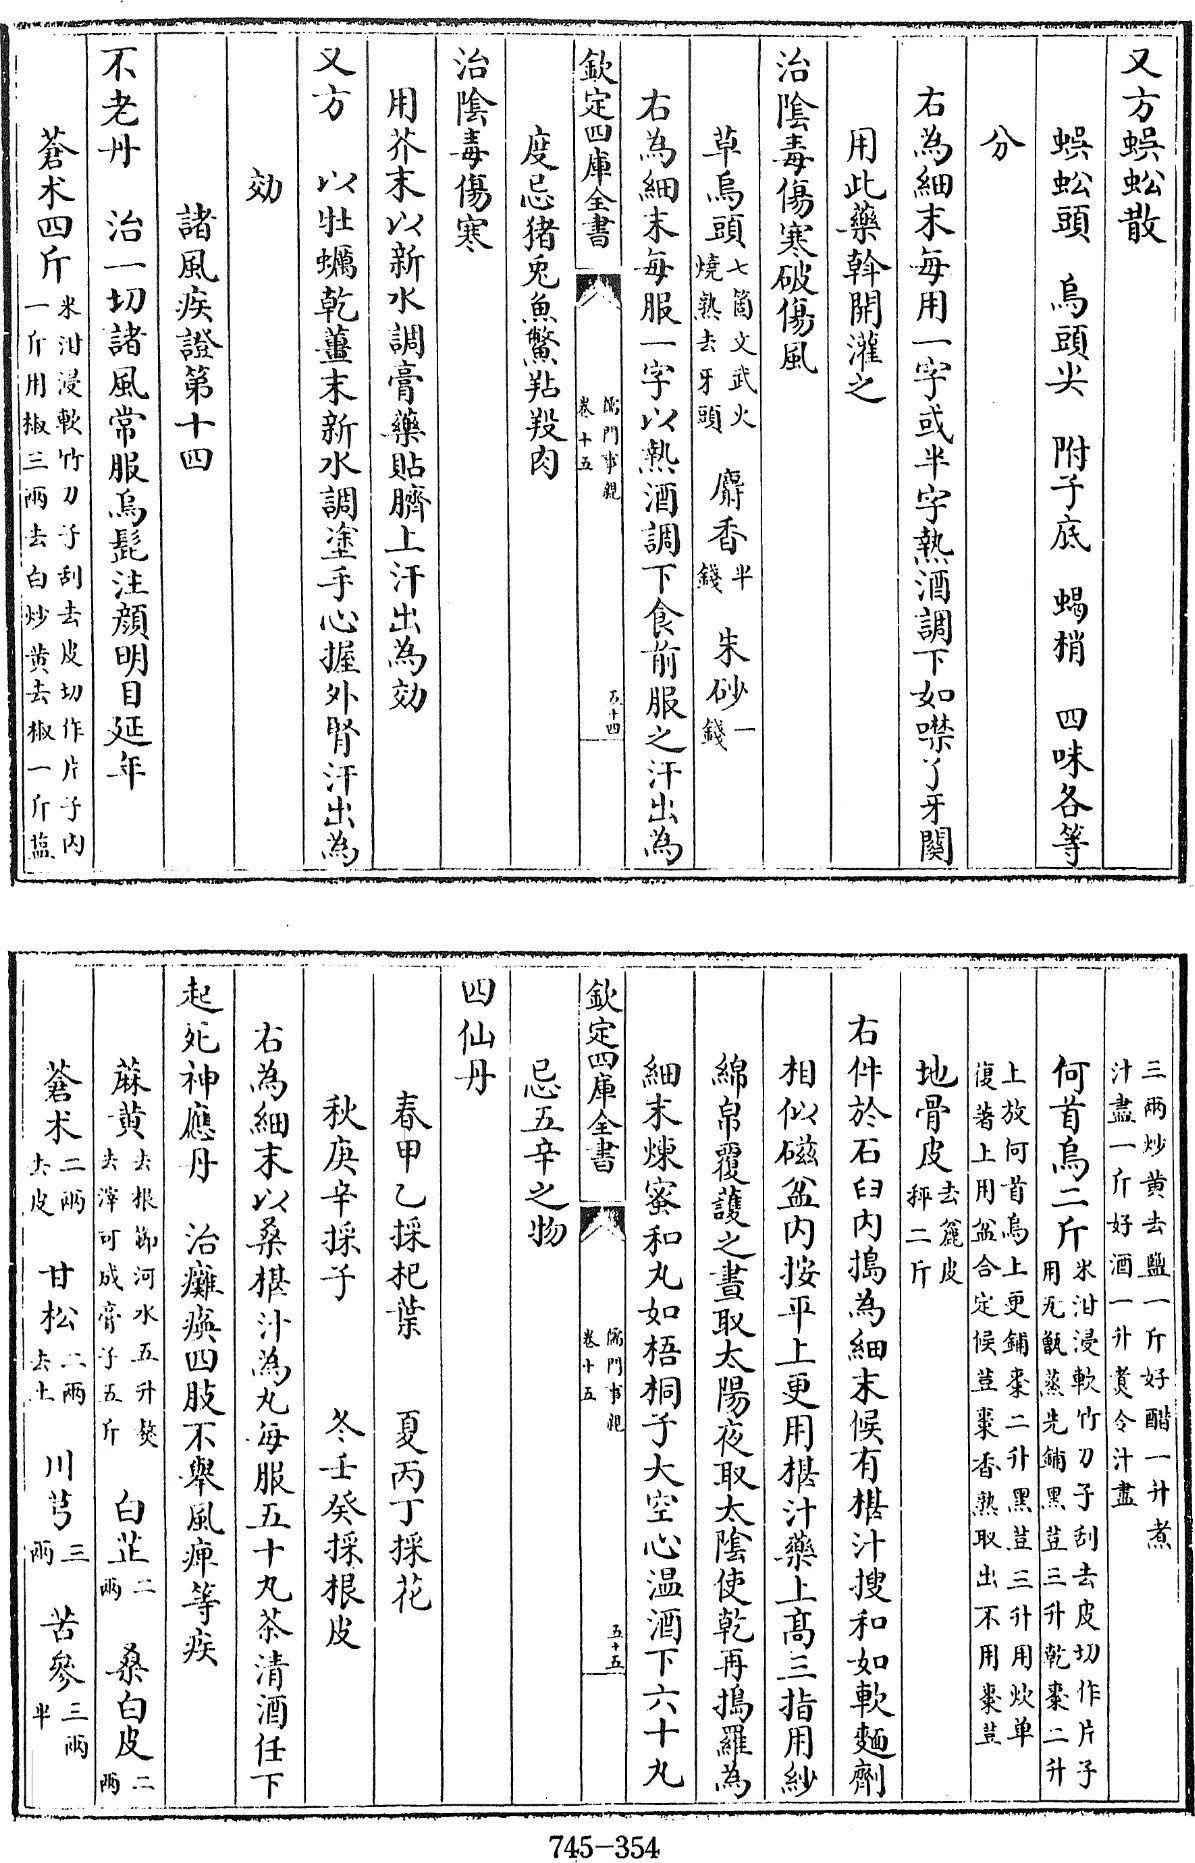 又方蜈蚣散
蜈蚣頭 烏頭尖 附子底 蝎梢 四味各等
分
右為細末每用一字或半字熱酒調下如噤了牙關
用此藥斡開灌之
治陰毒傷寒破傷風
草烏頭七箇文武火燒熟去牙頭 麝香半錢 朱砂一錢
右為細末每服一字以熱酒調下食前服之汗出為
欽定四庫全書 儒門事親 卷十五 五十四
度忌猪兎魚鱉羖羖肉
治陰毒傷寒
用芥末以新水調膏藥貼臍上汗出為効
又方 以牡蠣乾薑末新水調塗手心握外腎汗出為
効
諸風疾證第十四
不老丹 治一切諸風常服烏髭注顔明目延年
蒼术四斤米泔浸軟竹刀子刮去皮切作片子内一斤用椒三兩去白炒黄去椒一斤塩
三兩炒黄去鹽一斤好醋一升煮汁盡一斤好酒一升煑令汁盡
何首烏二斤米泔浸軟竹刀子刮去皮切作片子用瓦甑蒸先鋪黑荳三升乾棗二升
上放何首烏上更鋪棗二升黑荳三升用炊单復著上用盆合定候荳棗香熟取出不用棗荳
地骨皮去麄皮秤二斤
右件於石臼内搗為細末候有椹汁搜和如軟麺劑
相似磁盆内按平上更用椹汁藥上髙三指用紗
綿帛覆護之晝取太陽夜取太陰使乾再搗羅為
細末煉蜜和丸如梧桐子大空心温酒下六十丸
欽定四庫全書 儒門事親 卷十五 五十五
忌五辛之物
四仙丹
春甲乙採杞葉 夏丙丁採花
秋庚辛採子 冬壬癸採根皮
右為細末以桑椹汁為丸每服五十丸茶清酒任下
起死神應丹 治癱瘓四肢不舉風痺等疾
蔴黄去根節河水五升熬去滓可成膏子五斤 白芷二兩 桑白皮二兩
蒼术二兩去皮 甘松二兩去土 川芎三兩 苦參三兩半
745-354